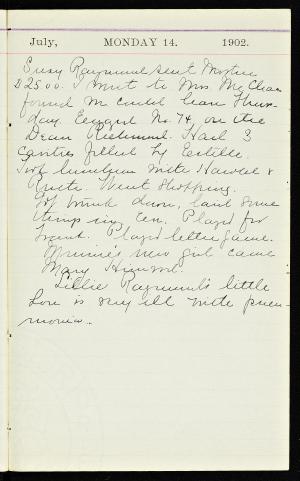 July, MONDAY 14. 1902.
Susy Raymond sent Mother
$25.00. I went to Mrs. McClean
found we could leave Thurs-
day. Engaged No. 74, on the
Dean Richmond. Had 3
cavities filled by Estelle.
Took luncheon with Harold &
Went Shopping.
down, laid some
things in Played for
Played letter game.
new girl came
Mary
Lillie Raymond's little
Lore is very ill with pneu-
monia.